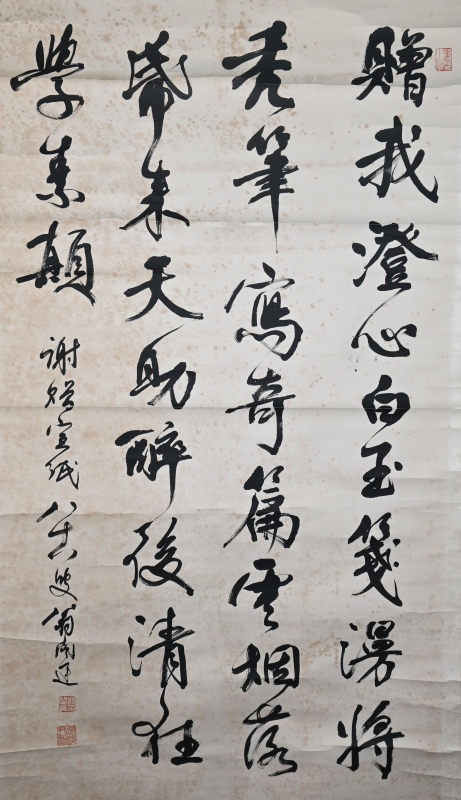 贈我澄心白玉箋漫將
禿筆寫奇篇雲烟落
帋来天助醉後清狂
學素顛
謝贈宣紙八十六叟翁闓運